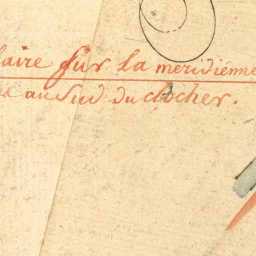 laire sur la meridiénne
au Sud du clocher.